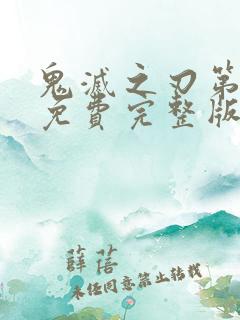 鬼滅之刃第
免費完整版
薛蓓
未经同意禁止转载